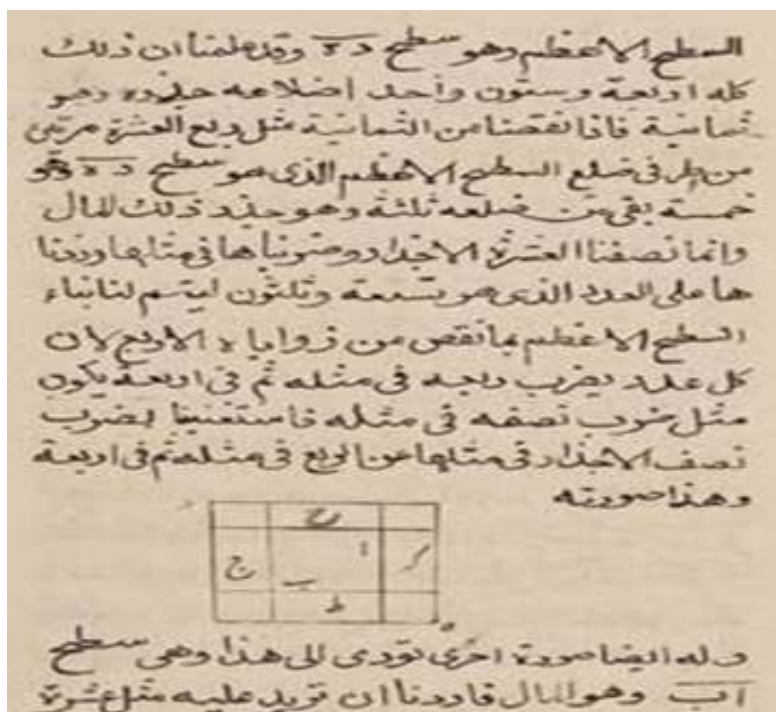 السطح الاعظم وهو سطح د ه وقد علمنا ان ذلك
كله اربعة وستون واحد اضلاعه جذره وهو
ثمانية فاذا نقصنا من الثمانية مثل ربع العشرة مرتين
من طرفى ضلع السطح الاعظم الذى هو سطح د ه وهو
خمسة بقى من ضلعه ثلثة وهو جذر ذلك المال
وانما نصفنا العشرة الاجذار وضربناها فى مثلها وزدنا
ها على العدد الذى هو تسعة وثلثون ليتم لنا بناء
السطح الاعظم بما نقص من زواياه الاربع لان
كل عدد يضرب ربعه فى مثله ثم فى اربعة يكون
مثل ضرب نصفه فى مثله فاستغنينا بضرب
نصف الاجذار فى مثلها عن الربع فى مثله ثم فى اربعة
وهذا صورته
ح
ا
ج
ك
ب
ط
ه
وله ايضا صورة اخرى تودى الى هذا وهى سطح
اب وهو المال فاردنا ان نزيد عليه مثل عشرة